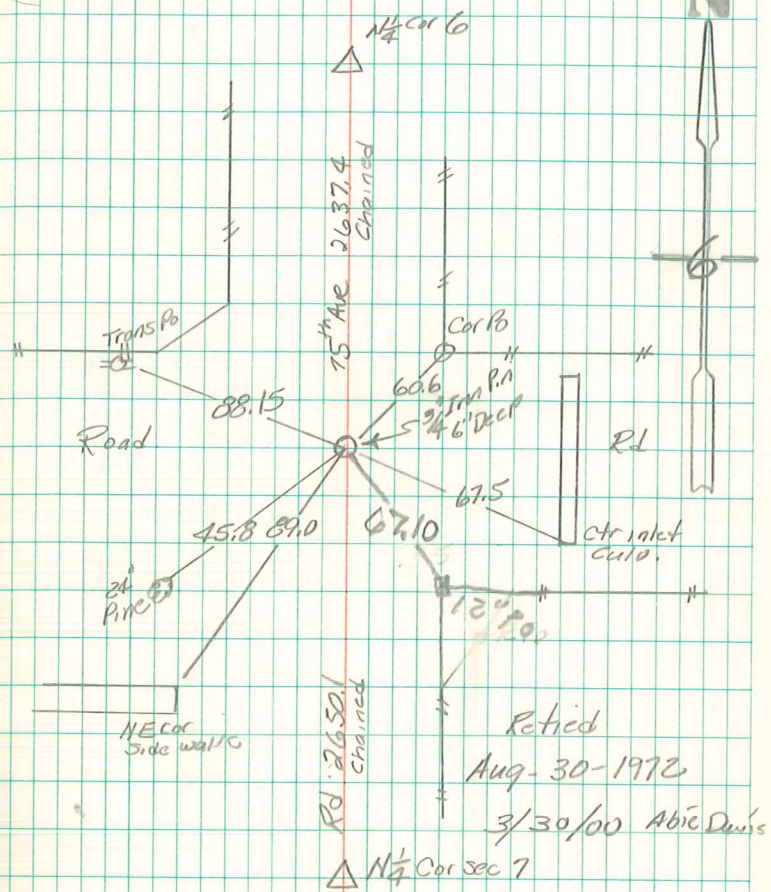 N
N¼ Cor 6
15th Ave 2637.4
Chained
Trans Po
Cor Po
60.6
¾" Iron Pin
6" Deep
88.15
Road
Rd
67.5
45.8 89.0
67.10
Ctr inlet
Culv.
Pine
12"
NE cor
Side walk
Rd 2650.1
Chained
Retied
Aug-30-1972
3/30/00 Abie Davis
N¼ Cor sec 7